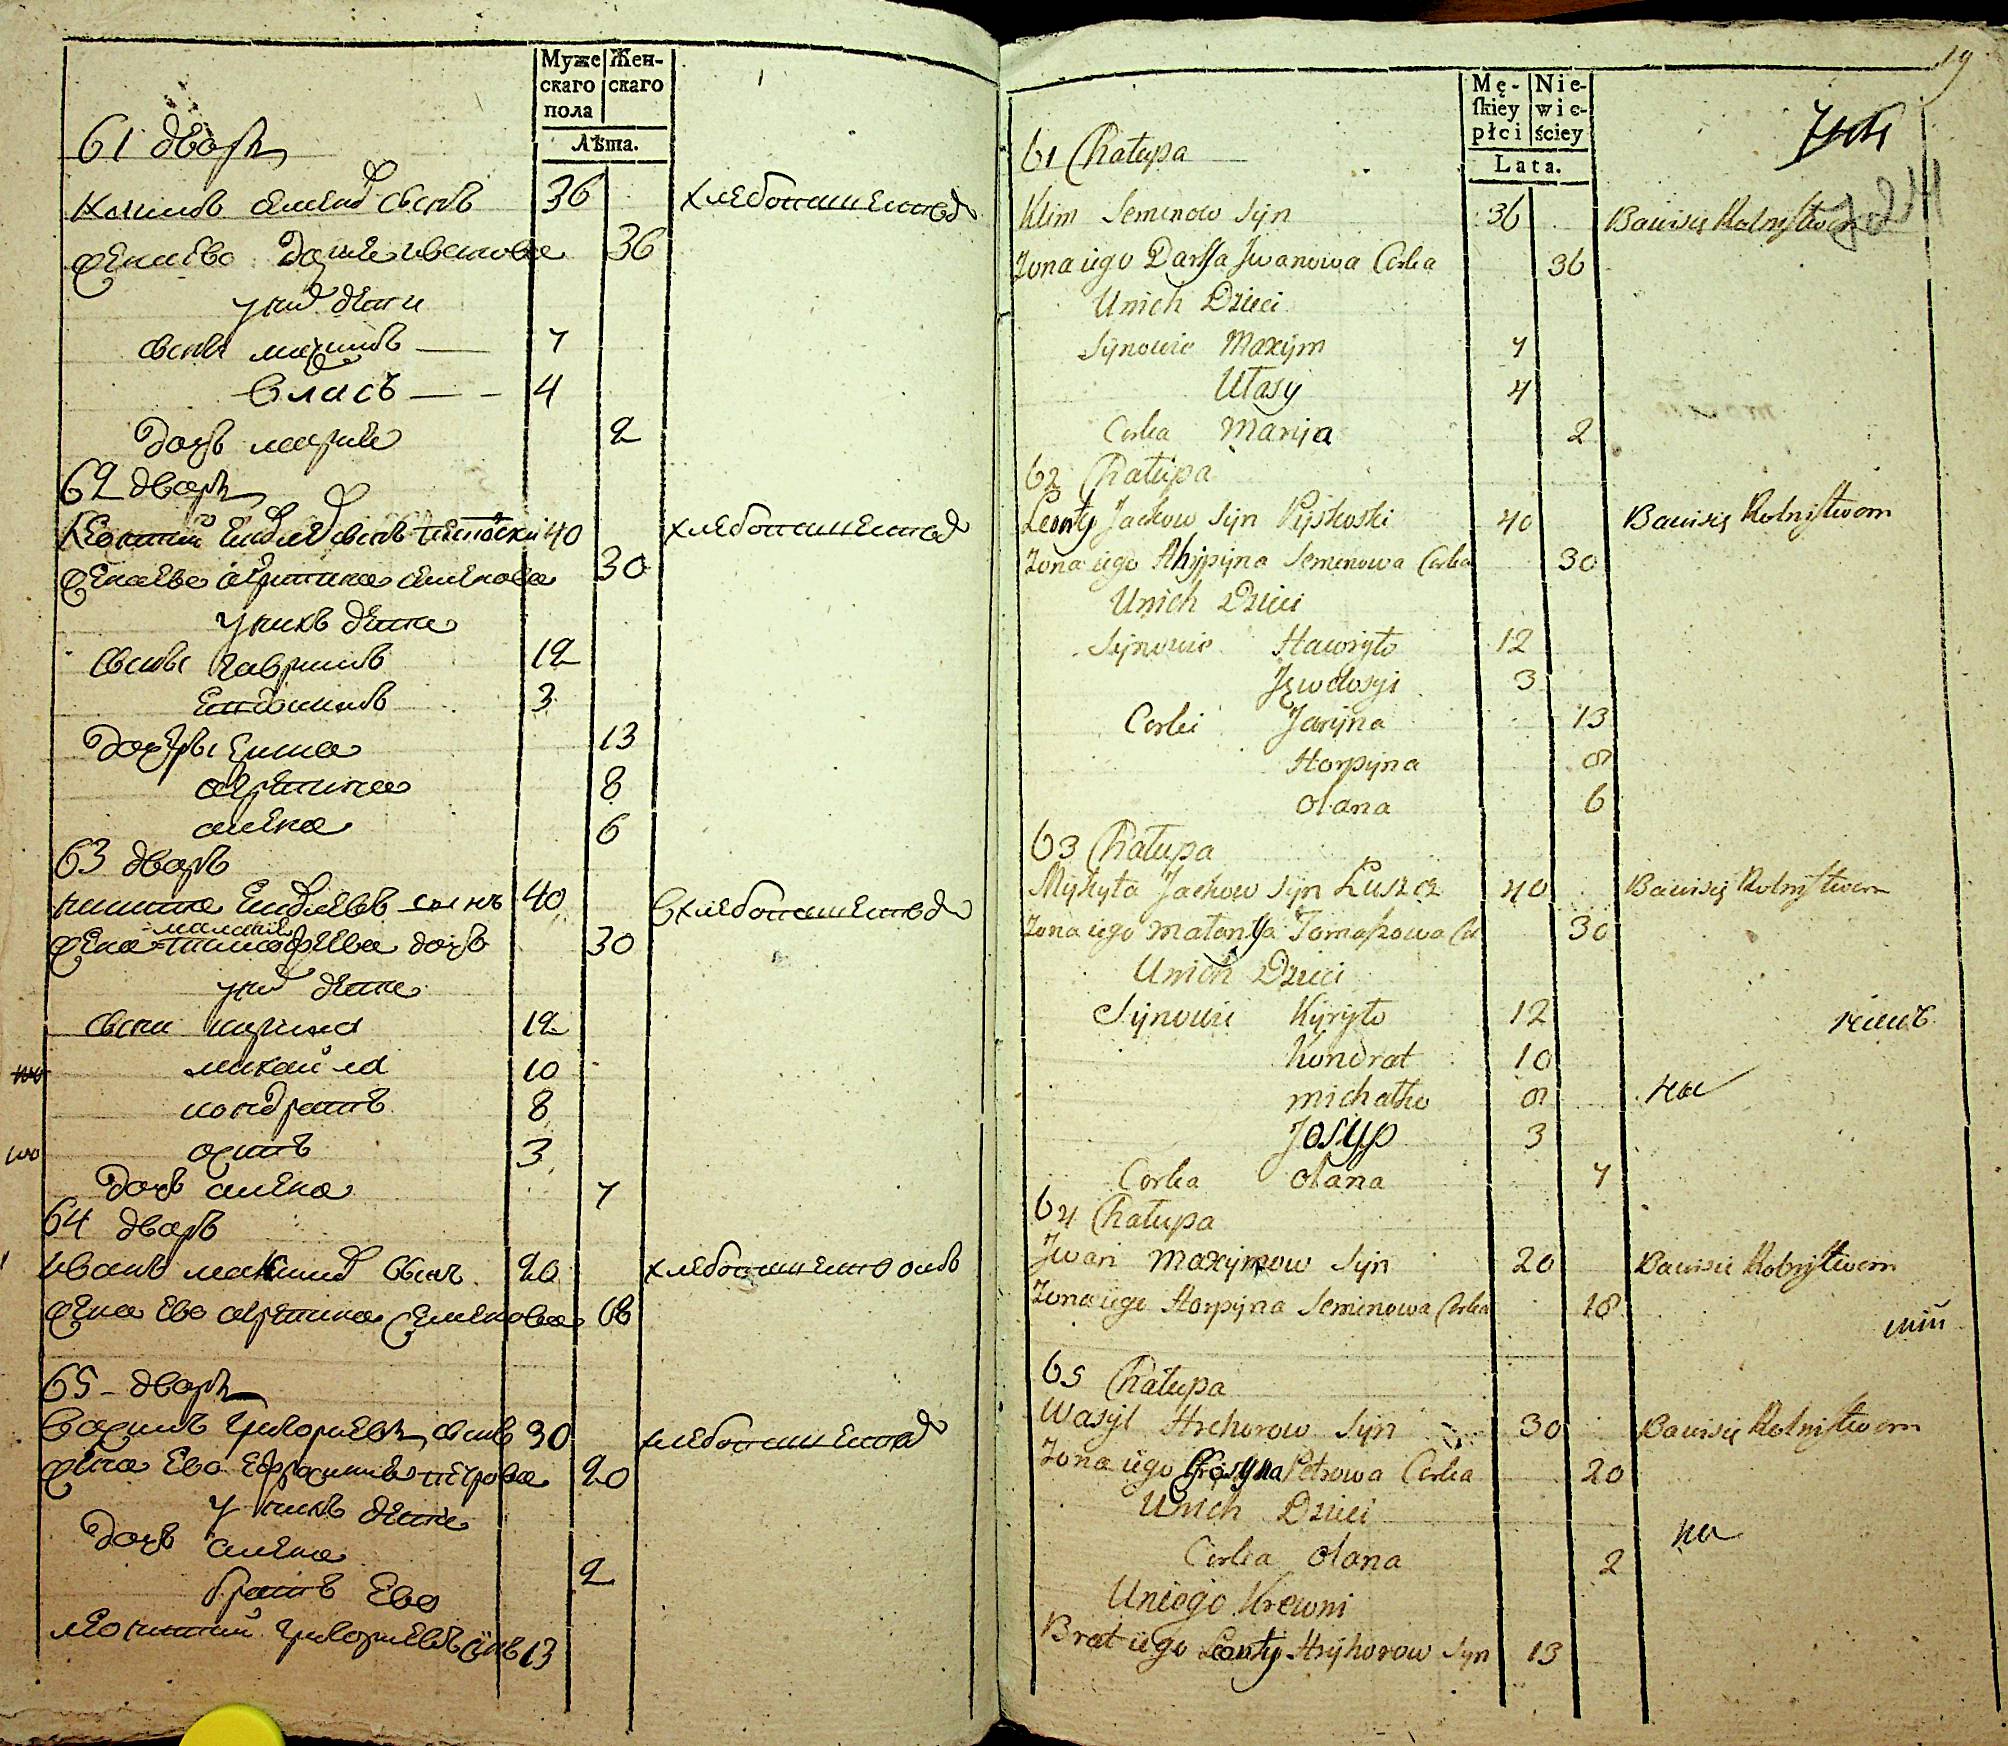 Муже
скаго
пола
Жен-
скаго
Лѣта.
61 дворъ
Климъ Семенов сынъ 36 хлебопашеством
жена ево Дарья Иванова 36
у них дети
сыны Максимъ — 7
Власъ — - 4
дочь Марья 2
62 дворъ
Леонтий сынъ 40 хлебопашеством
жена ево Агрипина Семенова 30
у нихъ дети
сыны Гаврилъ 12
3
дочеры Ирина 13
Агрипина 8
Алена 6
63 дворъ
Никита сынъ 40 хлебопашеством
Малания
жена дочь 30
у них дети
сыны Кирила 12
Михайла 10
Кондратъ 8
Осипъ 3
дочь Алена 7
64 дворъ
Иванъ Максимов сынъ 20 хлебопашеством
жена ево Агрипина Семенова 18
65 - дворъ
Василь Григорьевъ сынъ 30 хлебопашеством
жена ево Ефросиния Петрова 20
у нихъ дети
дочь Алена 2
братъ Ево
Леонтий Григорьевъ сынъ 13
19
Mę-
ſkiey
płci
Nie-
wie-
ściey
Lata.
61 Chałupa
Klim Semenow Syn 36 Bawisię Rolnistwem
Zona iego Darya Jwanowa Corka 36
Unich Dzieci
Synowie Maxym 7
Ułasy 4
Corka Marija 2
62 Chałupa
Leonty Jackow Syn 40 Bawisię Rolnistwem
Zona iego Ahypyna Semenowa Corka 30
Unich Dzieci
Synowie Hawryło 12
3
Corki Jaryna 13
Horpyna 8
Olana 6
63 Chałupa
Mykyta Jackow Syn Łuszcz 40 Bawisię Rolnistwem
Zona iego Małanya Tomaszowa Cor 30
Unich Dzieci
Synowie Kyryło 12
Kondrat 10
michałko 8
Josyp 3
Corka Olana 7
64 Chałupa
Jwan Maxymow Syn 20 Bawisie Rolnistwem
Zona iego Horpyna Semenowa Corka 18
65 Chałupa
Wasyl Hrehorow Syn 30 Bawisię Rolnistwem
Zona iego Petrowa Corka 20
Unich Dzieci
Corka Olana 2
Uniego Krewni
Brat iego Leonty Hryhorow Syn 13